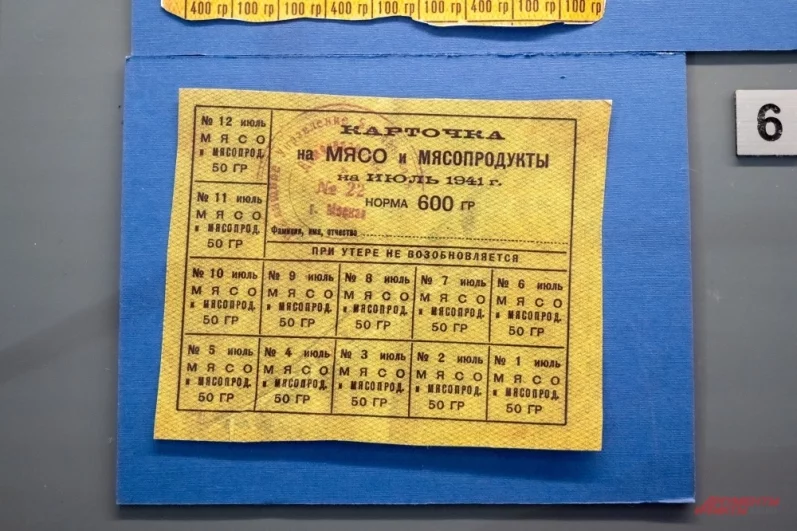 400 гр 100 гр 100 гр 400 гр 100 гр 100 гр 400 гр 100 гр 100 гр
6
КАРТОЧКА
на МЯСО и МЯСОПРОДУКТЫ
на ИЮЛЬ 1941 г.
НОРМА 600 ГР
Фамилия, имя, отчество
ПРИ УТЕРЕ НЕ ВОЗОБНОВЛЯЕТСЯ
№ 22
г. Москва
№ 12 июль
МЯСО
и МЯСОПРОД.
50 ГР
№ 11 июль
МЯСО
и МЯСОПРОД.
50 ГР
№ 10 июль
МЯСО
и МЯСОПРОД.
50 ГР
№ 9 июль
МЯСО
и МЯСОПРОД.
50 ГР
№ 8 июль
МЯСО
и МЯСОПРОД.
50 ГР
№ 7 июль
МЯСО
и МЯСОПРОД.
50 ГР
№ 6 июль
МЯСО
и МЯСОПРОД.
50 ГР
№ 5 июль
МЯСО
и МЯСОПРОД.
50 ГР
№ 4 июль
МЯСО
и МЯСОПРОД.
50 ГР
№ 3 июль
МЯСО
и МЯСОПРОД.
50 ГР
№ 2 июль
МЯСО
и МЯСОПРОД.
50 ГР
№ 1 июль
МЯСО
и МЯСОПРОД.
50 ГР